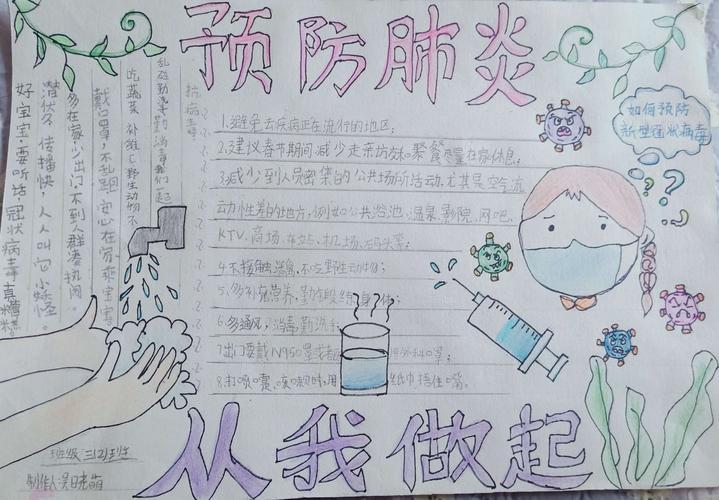 预防肺炎
好宝宝,要听话 冠状病毒真糟糕。
潜伏久 传播快,人人叫它小矮怪。
多在家少出门不到人群凑热闹。
戴口罩,不乱跑,安心在家乖宝宝
吃蔬菜 补维C野生动物不
乱碰勤洗手勤消毒我们一起
抗病毒
1.避免去疾病正在流行的地区;
2.建议春节期间减少走亲访友和聚餐尽量在家休息;
3.减少到人员密集的公共场所活动,尤其是空气流
动性差的地方,例如公共浴池、温泉、影院、网吧、
KTV、商场、车站、机场、码头等;
4.不接触 不吃野生动物;
5.多补充营养,勤锻 身体;
6.多通风,消毒勤洗手
7.出门要戴N95口罩或 外科口罩;
8.打喷嚏、咳嗽时,用 纸巾捂住口鼻。
如何预防
新型冠状病毒
从我做起
班级 三(2)班
制作人